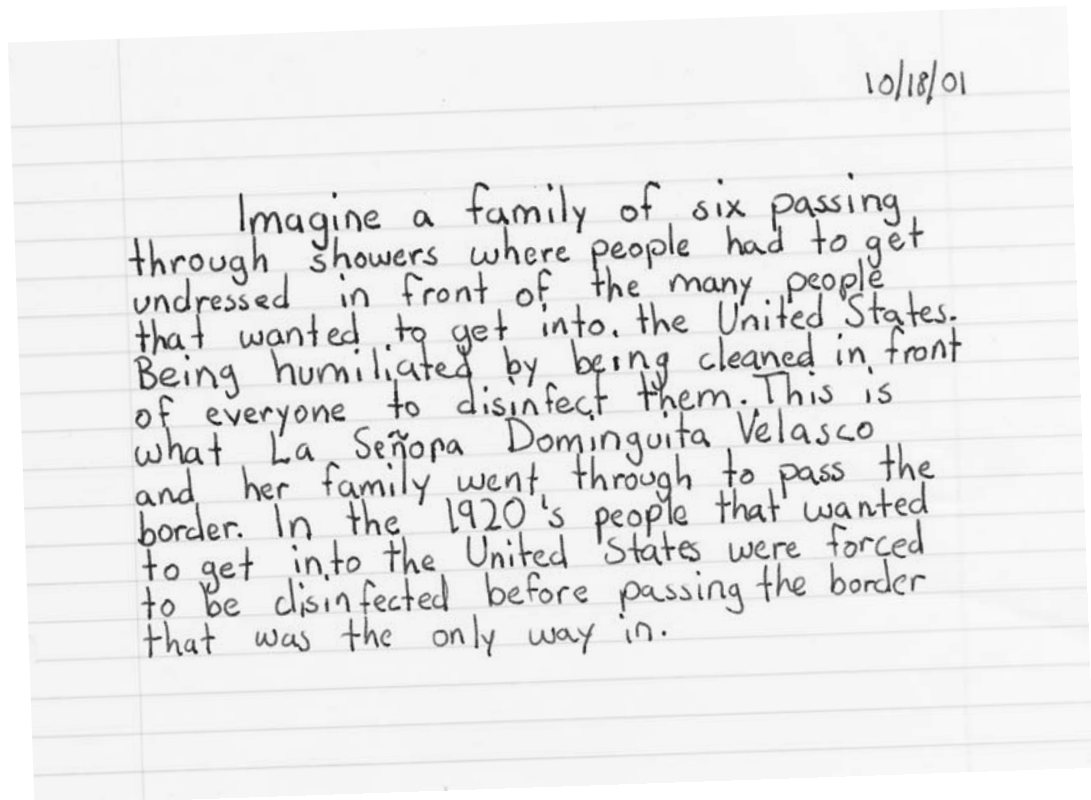 10/18/01
Imagine a family of six passing
through showers where people had to get
undressed in front of the many people
that wanted to get into. the United States.
Being humiliated by being cleaned in front
of everyone to disinfect them. This is
what La Señora Dominguita Velasco
and her family went through to pass the
border. In the 1920's people that wanted
to get into the United States were forced
to be disinfected before passing the border
that was the only way in.